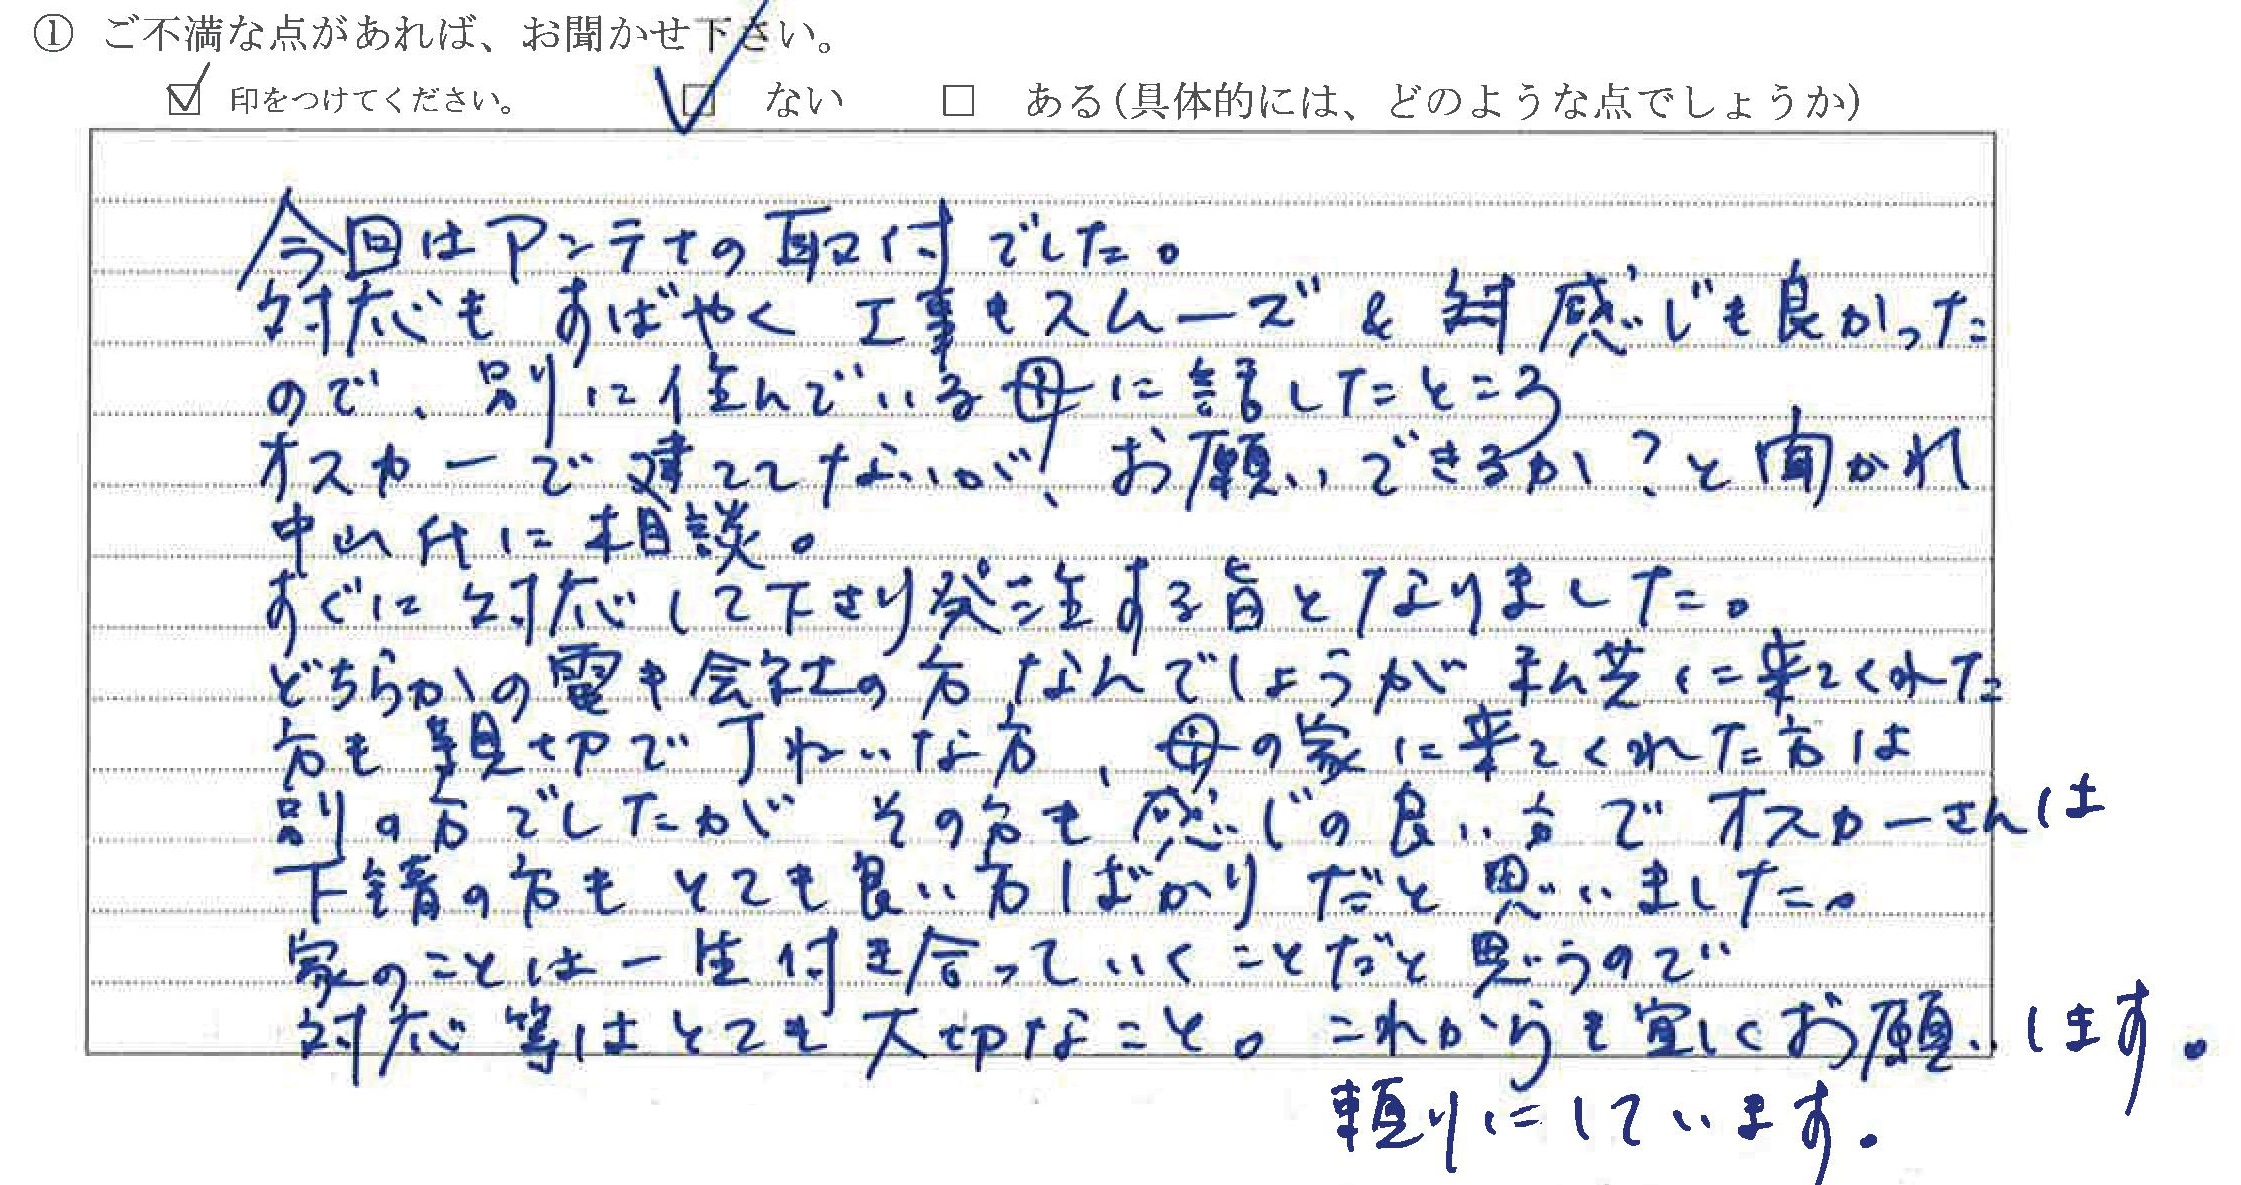 ① ご不満な点があれば、お聞かせ下さい。
☑ 印をつけてください。 ☑ ない □ ある(具体的には、どのような点でしょうか)
今回はアンテナの取付でした。
対応もすばやく工事もスムーズ& 感じも良かった
ので、別に住んでいる母に話したところ
オスカーで建ててないが、お願いできるか?と聞かれ
中山氏に相談。
すぐに対応して下さり発注する旨となりました。
どちらかの電キ会社の方なんでしょうが私共に来てくれた
方も親切で丁ねいな方、母の家に来てくれた方は
別の方でしたがその方も感じの良い方でオスカーさんは
下請の方もとても良い方ばかりだと思いました。
家のことは一生付き合っていくことだと思うので
対応等はとても大切なこと。これからも宜しくお願いします。
頼りにしています。